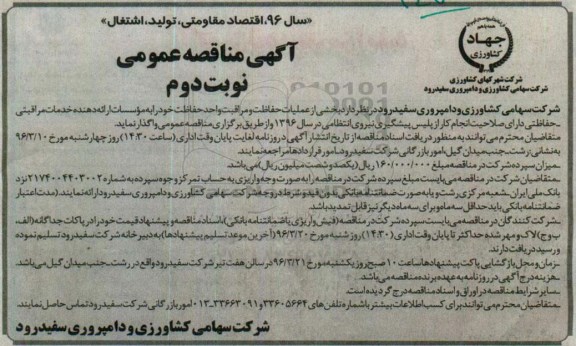 «سال ۹۶، اقتصاد مقاومتی، تولید، اشتغال»
جهاد
کشاورزی
شرکت شهرکهای کشاورزی
شرکت سهامی کشاورزی و دامپروری سفیدرود
آگهی مناقصه عمومی
نوبت دوم
شرکت سهامی کشاورزی و دامپروری سفیدرود در نظر دارد بخشی از عملیات حفاظت و مراقبت واحد حفاظت خود را به مؤسسات ارائه دهنده خدمات مراقبتی
ـ حفاظتی دارای صلاحیت انجام کار از پلیس پیشگیری نیروی انتظامی در سال ۱۳۹۶ و از طریق برگزاری مناقصه عمومی واگذار نماید.
متقاضیان محترم می‌توانند به منظور دریافت اسناد مناقصه از تاریخ انتشار آگهی در روزنامه لغایت پایان وقت اداری (ساعت ۱۴:۳۰) روز چهارشنبه مورخ ۹۶/۳/۱۰
به نشانی رشت، جنب میدان گیل، امور بازرگانی شرکت سفیدرود و امور قراردادها مراجعه نمایند.
ـ میزان سپرده شرکت در مناقصه مبلغ ۱۶۰/۰۰۰/۰۰۰ ریال (یکصد و شصت میلیون ریال) می‌باشد.
ـ متقاضیان شرکت در مناقصه می‌بایست مبلغ سپرده شرکت در مناقصه را به صورت وجه واریزی به حساب تمرکز وجوه سپرده به شماره ۲۱۷۴۰۰۴۴۰۳۰۰۲ نزد
بانک ملی ایران شعبه مرکزی رشت و یا به صورت ضمانتنامه بانکی بدون قید و شرط در وجه شرکت سهامی کشاورزی و دامپروری سفیدرود ارائه نمایند. (مدت اعتبار
ضمانتنامه بانکی باید حداقل سه ماه و برای سه ماه دیگر نیز قابل تمدید باشد.
ـ شرکت کنندگان در مناقصه می‌بایست سپرده شرکت در مناقصه (فیش واریزی یا ضمانتنامه بانکی) با اسناد مناقصه و پیشنهاد قیمت خود را در پاکات جداگانه (الف،
ب و ج) لاک و مهر شده حداکثر تا پایان وقت اداری (۱۴:۳۰) روز شنبه مورخ ۹۶/۳/۲۰ (آخرین موعد تسلیم پیشنهادها) به دبیرخانه شرکت سفیدرود تسلیم نموده
و رسید دریافت دارند.
ـ زمان و محل بازگشایی پاکت پیشنهادها ساعت ۱۰ صبح روز یکشنبه مورخ ۹۶/۳/۲۱ در سالن هفت تیر شرکت سفیدرود واقع در رشت، جنب میدان گیل می‌باشد.
ـ هزینه درج آگهی در روزنامه به عهده برنده مناقصه می‌باشد.
ـ سایر شرایط مناقصه در اوراق و اسناد مناقصه درج گردیده است.
ـ متقاضیان محترم می‌توانند برای کسب اطلاعات بیشتر با شماره تلفن‌های ۳۳۶۰۵۶۶۴ و ۳۳۶۶۳۰۹۱-۰۱۳ امور بازرگانی شرکت سفیدرود تماس حاصل نمایند.
شرکت سهامی کشاورزی و دامپروری سفیدرود